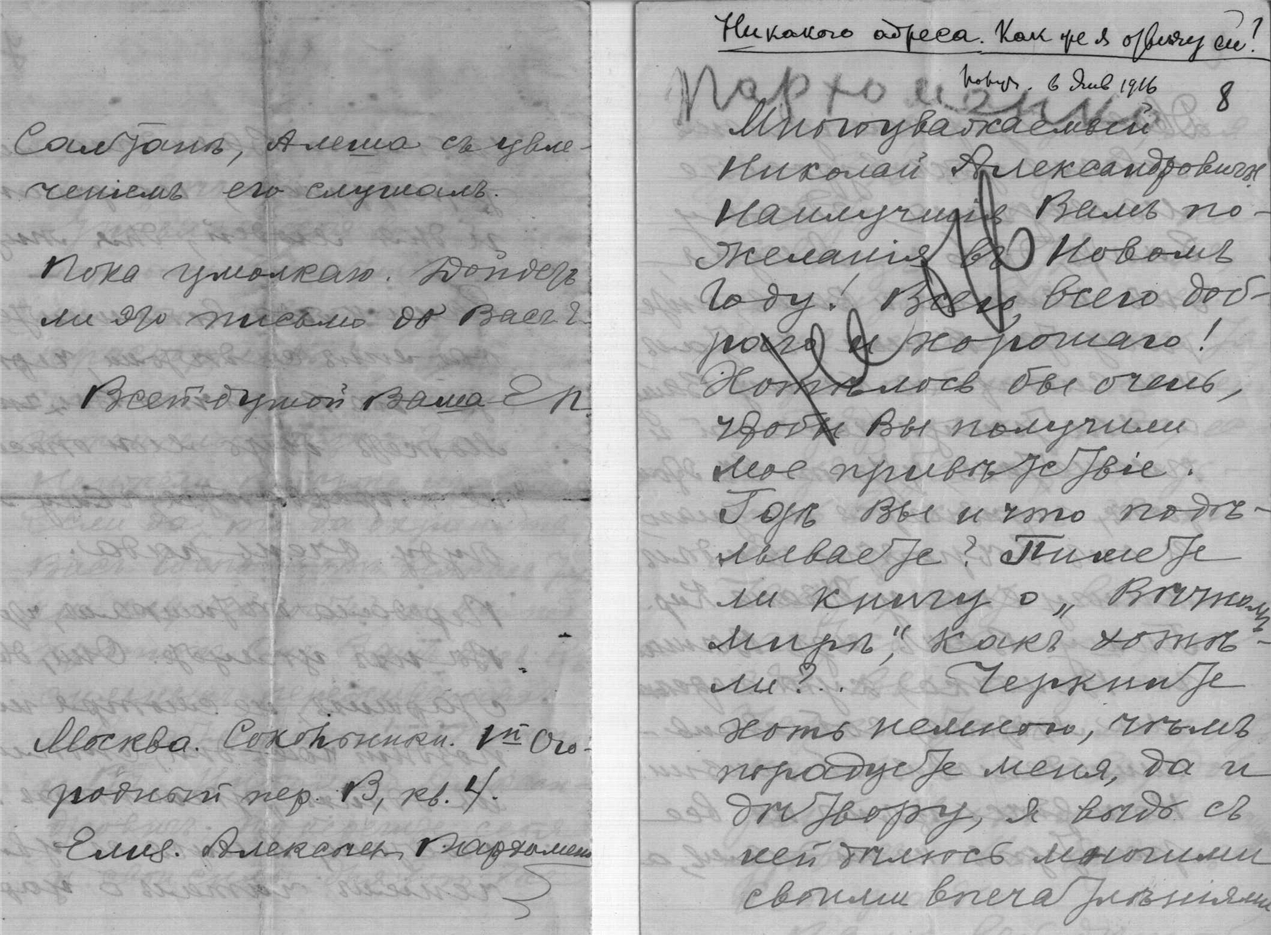 Салтанъ, Алеша съ увле-
ченіемъ его слушалъ.
Пока умолкаю. Дойдетъ
ли это письмо до Васъ?
Всей душой Ваша Е П.
Москва. Сокольники. Огo-
родный пер. В, кв. 4.
Елиз. Алексѣев. Пархоменко
Никакого адреса. Как же я отвечу ей?
Получ. 6 Янв 1916
8
Пархоменко
Многоуважаемый
Николай Александровичъ
Наилучшія Вамъ по-
желанія въ Новомъ
Году! Всего, всего доб-
раго и хорошаго!
Хотѣлось бы очень,
чтобы Вы получили
мое привѣтствіе.
Гдѣ Вы и что подѣ-
лываете? Пишете
ли книгу о „Вѣчномъ
мирѣ“, какъ хотѣ-
ли?.. Черкните
хоть немного, чѣмъ
порадуете меня, да и
дѣтвору, я вѣдь съ
ней дѣлюсь многими
своими впечатлѣніями